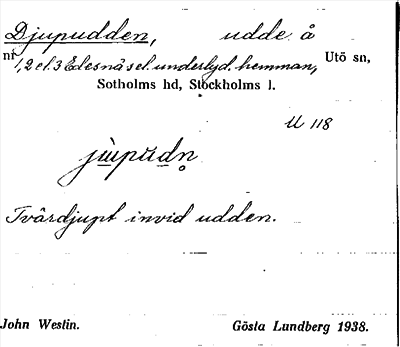 Djupudden, udde å
nr 1,2 el. 3 Edesnäs el. underlyd. hemman, Utö sn,
Sotholms hd, Stockholms l.
U 118
jùpŭdn̥
Tvärdjupt invid udden.
John Westin. Gösta Lundberg 1938.